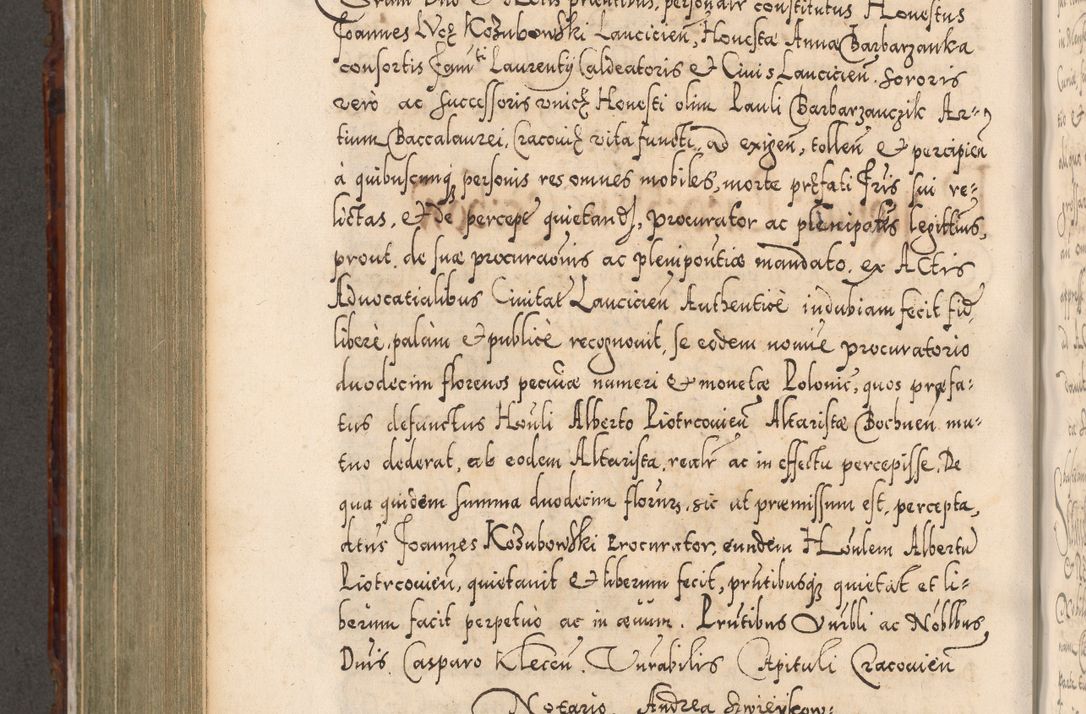 Coram Dno & Notis prñtibus, personalr constitutus Honestus
Joannes Vcz Kozubowski Lancicien, Honestæ Annæ Barbarzanka
consortis Fam͂ti Laurentij Caldeatoris & Civis Lancicien. Sororis
vero ac Successoris vnicę Honesti olim Pauli Barbarzanczik Ar=
tium Baccalaurei, Cracovię vita functi, ad exigen, tollen & percipien
à quibuscunq, personis res omnes mobiles, morte pręfati Fris sui re=
lictas, & de percept quietand, procurator ac plenipotes legittus,
prout de suæ procuraonis ac plenipontiæ mandato, ex Actis
Aduocatialibus Ciuitat Lancicien Authenticè indubiam fecit fid,
liberè, palàm & publicè recognouit, se eodem nomiē procuratorio
duodecim florenos pecuiæ numeri & monetæ Polonic, quos præfa=
tus defunctus Honli Alberto Piotrcouien Altaristæ Bochnen mu=
tuo dederat, ab eodem Altarista, realr ac in effectu percepisse. De
qua quidem summa duodecim florūz, sic ut præmissum est, percepta,
idem Joannes Kozubowski Procurator, eundem Honlem Albertū
Piotrcouien, quietauit & liberum fecit, prñtibusq, quietat et li=
berum facit perpetuò ac in æuum. Prñtibus Vnrbli ac Nobllbus
Dnis Casparo Klecen Vnrabilis Capituli Cracouien
Notario, Andrea